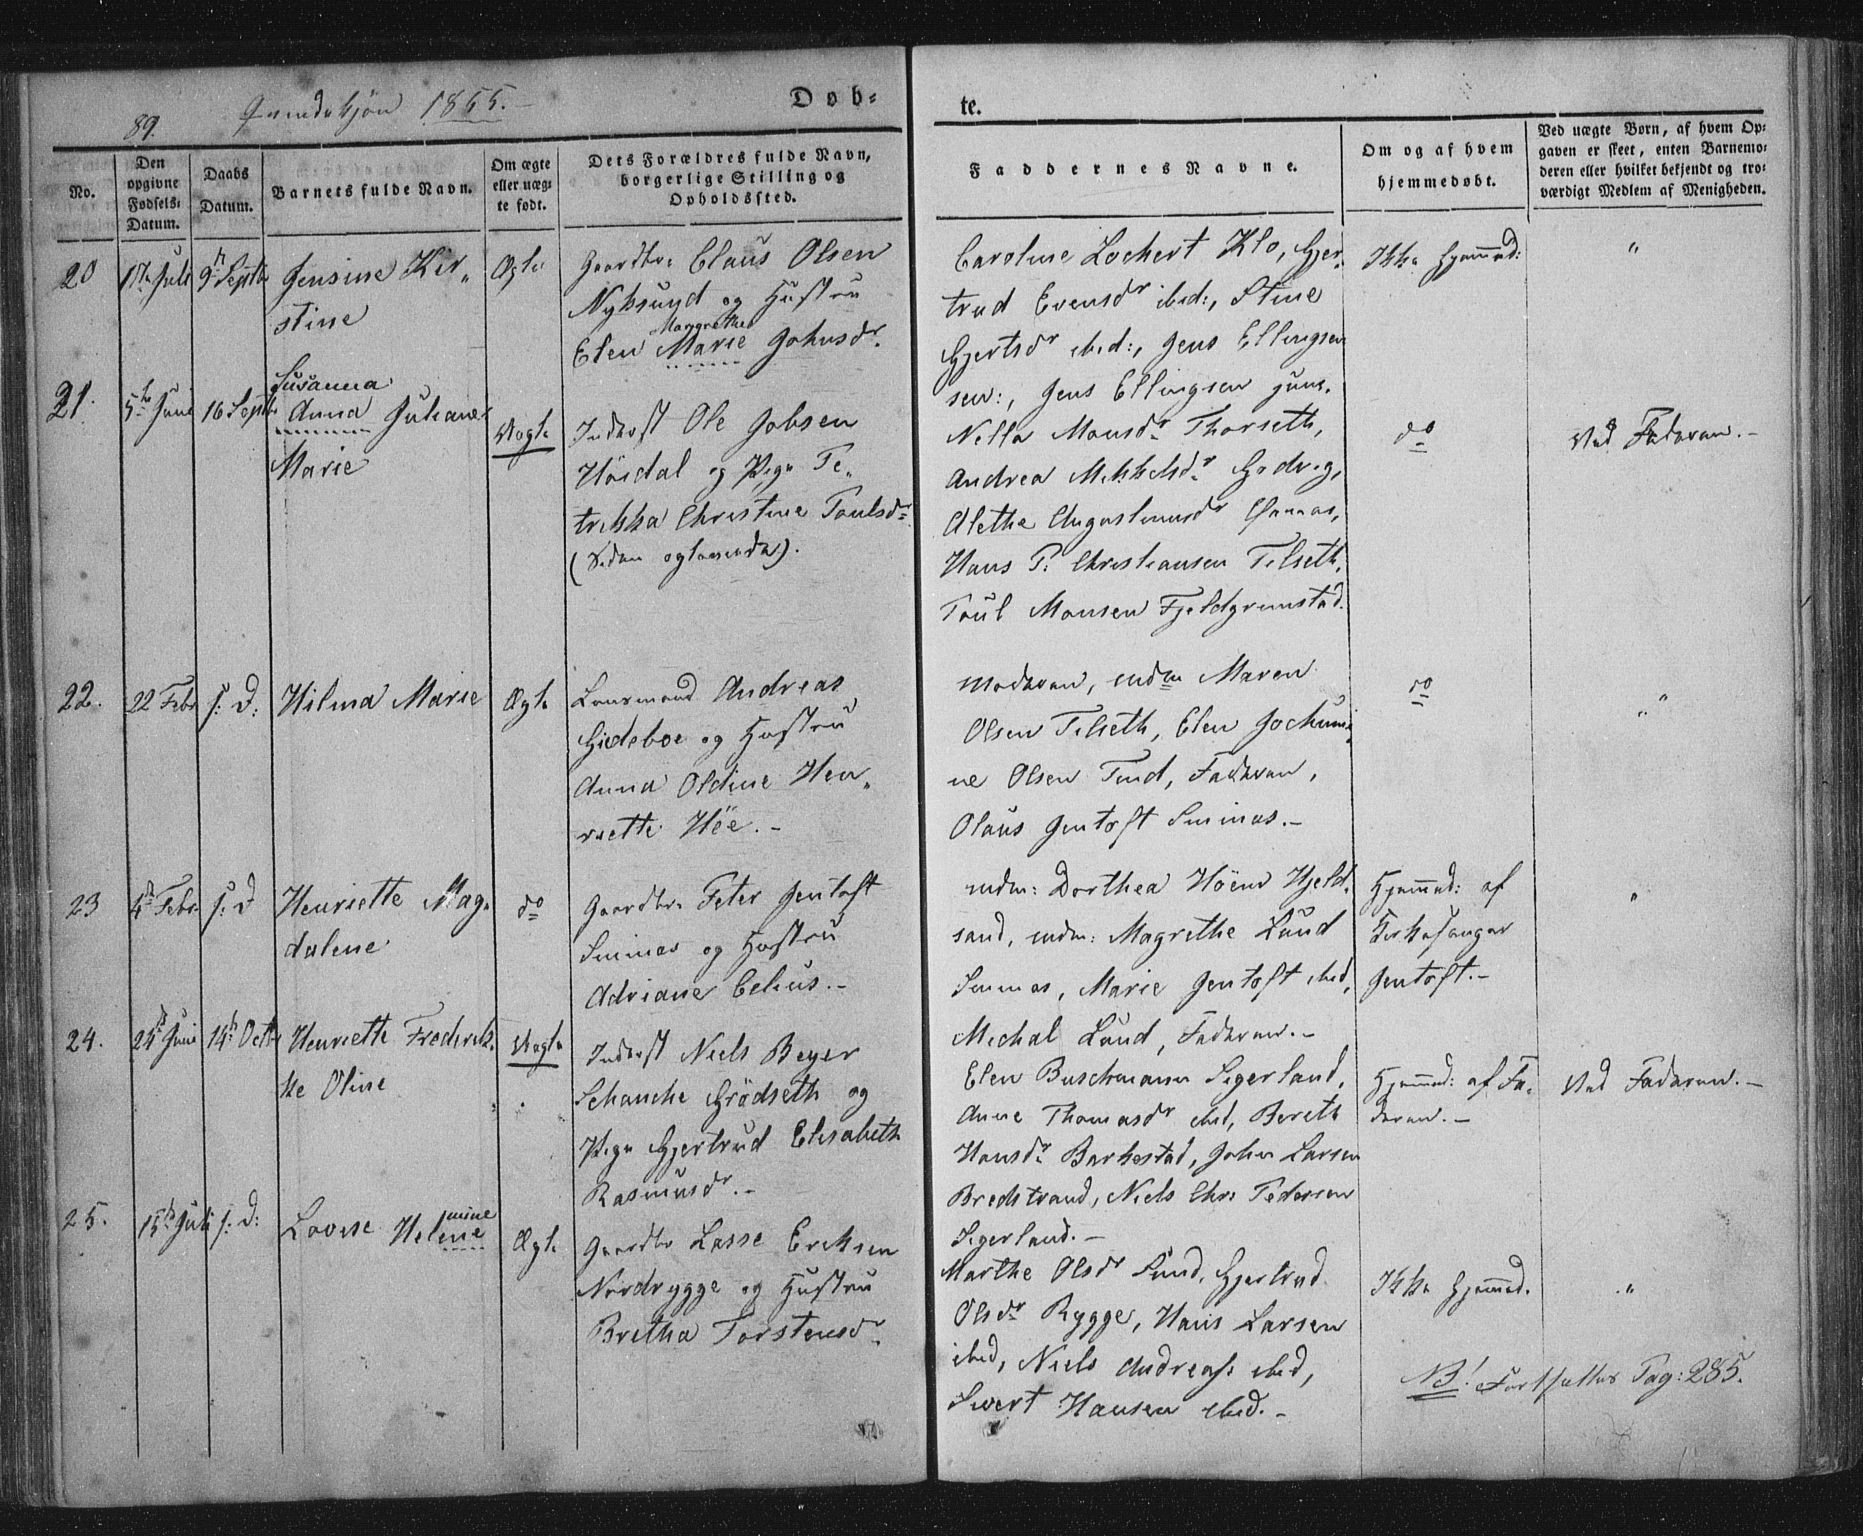 89.
Qvindekjøn 1855.
Døb-
te.
No.
Den
opgivne
Fødsels-
Datum.
Daabs
Datum.
Barnets fulde Navn.
Om ægte
eller uæg-
te født.
Dets Forældres fulde Navn,
borgerlige Stilling og
Opholdssted.
Faddernes Navne.
Om og af hvem
hjemmedøbt.
Ved uægte Børn, af hvem Op-
gaven er skeet, enten Barnemo-
deren eller hvilket bekjendt og tro-
værdigt Medlem af Menigheden.
20
17de Juli
9de Septbr
Jensine Kir-
stine
Ægte
Gaardbr. Claus Olsen
Nyksund og Hustru
Margrethe
Elen Marie Johnsdr.
Caroline Lockert Klo, Gjer-
trud Evensdr ibid:, Stine
Gjertsdr ibid:, Jens Ellingsen
sen:, Jens Ellingsen jun:.
Ikke hjemmed:
"
21.
5te Juni
16 Septbr
Susanna
Anna Juliane
Marie
Uægte
Inderst Ole Jobsen
Høidal og Pige Pe-
trikka Christine Poulsdr
(Siden ægteviede).
Nella Monsdr Thorseth,
Andrea Mikkelsdr
Alethe Augustinusdr
Hans P. Christiansen Tilseth,
Poul Monsen Fjeldgrunstad.
do
Ved Faderen.-
22.
22 Febr
s: D:
Hilma Marie
Ægte
Lensmand Andreas
Giedeboe og Hustru
Anna Oldine Hen-
riette Höe.-
Moderen, Mdm Maren
Olsen Tilseth, Elen Jochumi-
ne Olsen Tind, Faderen,
Olaus Jentoft Sminæs.-
do
"
23
4de Febr.
s: D
Henriette Mag-
dalene
do
Gaardbr. Peter Jentoft
Sminæs og Hustru
Adriane Celius.-
Mdm: Dorthea Höeur Hjeld-
sand, Mdm: Magrethe Lund
Sminæs, Marie Jentoft ibid,
Michal Lund, Faderen.-
Hjemmed: af
Kirkesanger
Jentoft.-
"
24.
24de Juni
14de Octbr
Henriette Frederik-
ke Oline
Uægte
Inderst Niels Beyer
Schanche Grödseth og
Pige Gjertrud Elisabeth
Rasmusdr.-
Elen Buschmann Sigerland,
Anne Thomasdr ibid, Bereth
Hansdr Barkestad, John Larsen
Bredstrand, Niels Chr. Pedersen
Sigerland.-
Hjemmed: af Fa-
deren.-
Ved Faderen.-
25.
15de Juli
s: D:
mine
Lovise Helene
Ægte
Gaardbr Lasse Eriksen
Nordrygge og Hustru
Bretha Torstensdr
Marthe Olsdr Sund, Gjertrud
Olsdr Rygge, Hans Larsen
ibid, Niels Andreass ibid,
Sivert Hansen ibid.-
Ikke hjemmed.
"
NB! Fortsættes Pag: 285.